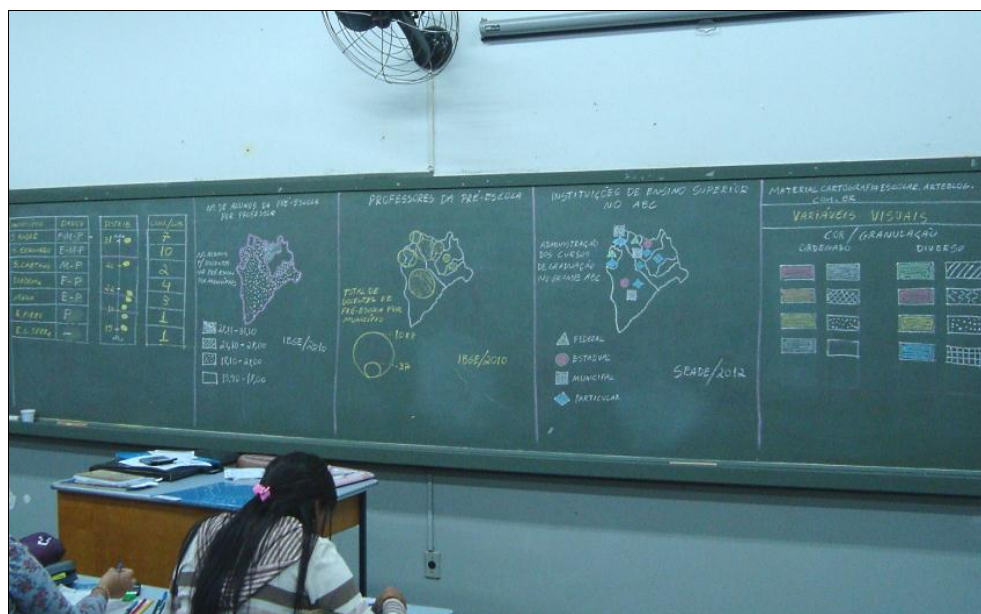 MUNICÍPIO DADOS DISTRIB. CLAS/UM.
S. ANDRÉ 7
S. BERNARDO E-M-P 10
S. CAETANO M-P 2
DIADEMA E-P 4
MAUÁ E-P 3
R. PIRES P 1
R.G. SERRA - 1
Nº DE ALUNOS DA PRÉ-ESCOLA
POR PROFESSOR
Nº ALUNOS
P/ DOCENTE
NA PRÉ-ESCOLA
21,10-24,00
13,90-18,00
IBGE/2010
PROFESSORES DA PRÉ-ESCOLA
TOTAL DE
DOCENTES DE
PRÉ-ESCOLA POR
MUNICÍPIO
37
IBGE/2010
INSTITUIÇÕES DE ENSINO SUPERIOR
NO ABC
ADMINISTRAÇÃO
DOS CURSOS
DE GRADUAÇÃO
NO GRANDE ABC
FEDERAL
ESTADUAL
MUNICIPAL
PARTICULAR
SEADE/2012
MATERIAL CARTOGRAFIA ESCOLAR. ARTEBLOG.
COM.BR
VARIÁVEIS VISUAIS
COR/GRANULAÇÃO
ORDENADO DIVERSO